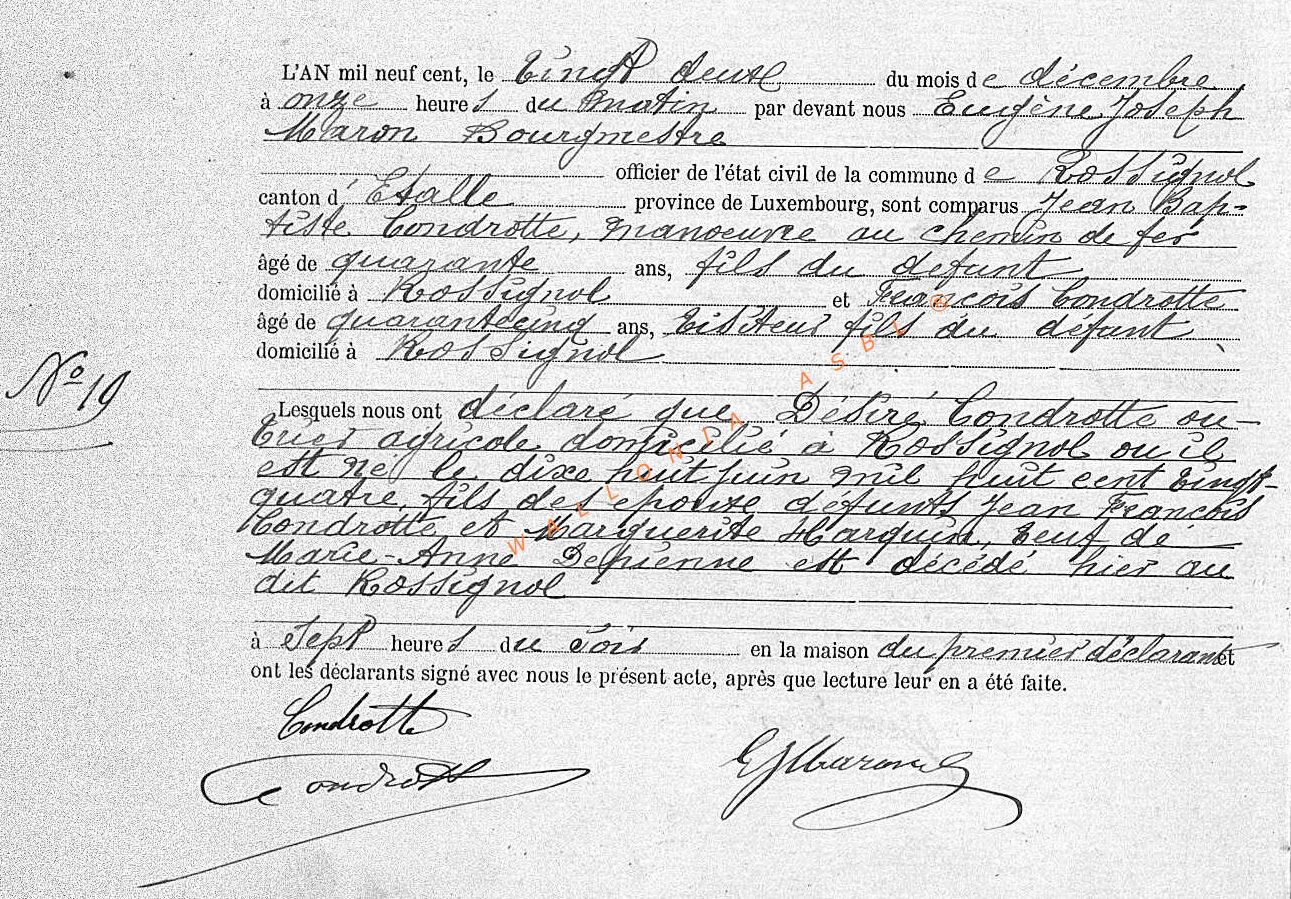 L'AN mil neuf cent, le Vingt deux du mois de décembre
à onze heures du matin par devant nous Eugène Joseph
Maron Bourgmestre
officier de l'état civil de la commune de Rossignol
canton d'Etalle province de Luxembourg, sont comparus Jean Bap-
tiste Condrotte, manoeuvre au chemin de fer
âgé de quarante ans, fils du defunt
domicilié à Rossignol et François Condrotte
âgé de quarantecinq ans, visiteur fils du défunt
domicilié à Rossignol
No 19
Lesquels nous ont déclaré que Désiré Condrotte ou-
vrier agricole domicilié à Rossignol ou il
est né le dixe huit juin mil huit cent vingt-
quatre, fils des epoux défunts Jean François
Condrotte et Marguerite Harquin, veuf de
Marie-Anne Depienne est décédé hier au
dit Rossignol
à sept heures du soir en la maison du premier déclarant et
ont les déclarants signé avec nous le présent acte, après que lecture leur en a été faite.
Condrotte
EJMaron
Condrotte
WALLONIA ASBL ©